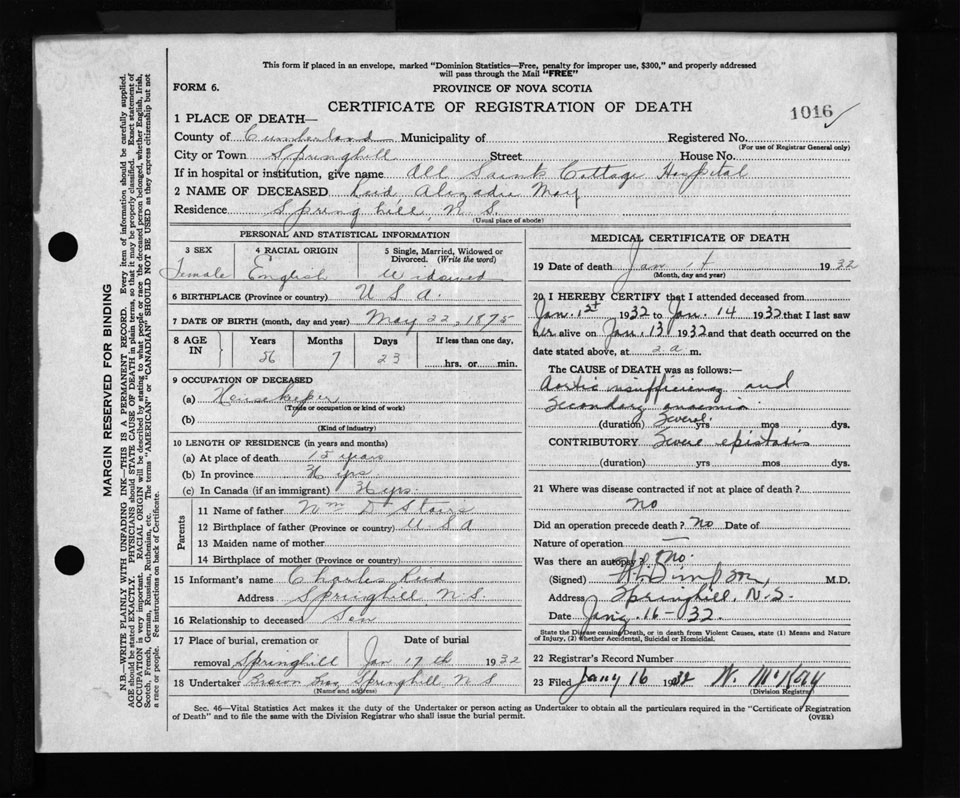 This form if placed in an envelope, marked "Dominion Statistics—Free, penalty for improper use, $300," and properly addressed
will pass through the Mail "FREE"
FORM 6.
PROVINCE OF NOVA SCOTIA
CERTIFICATE OF REGISTRATION OF DEATH
1016
1 PLACE OF DEATH—
County of Cumberland Municipality of Registered No.
(For use of Registrar General only)
City or Town Springhill Street House No.
If in hospital or institution, give name All Saints Cottage Hospital
2 NAME OF DECEASED Reid May
Residence Spring hill, N. S.
(Usual place of abode)
PERSONAL AND STATISTICAL INFORMATION
3 SEX
Female
4 RACIAL ORIGIN
English
5 Single, Married, Widowed or
Divorced. (Write the word)
Widowed
6 BIRTHPLACE (Province or country) U S A.
7 DATE OF BIRTH (month, day and year) May 22, 1875
8 AGE IN
Years Months Days If less than one day,
56 7 23 hrs. or min.
9 OCCUPATION OF DECEASED
(a) Housekeeper
(Trade or occupation or kind of work)
(b)
(Kind of industry)
10 LENGTH OF RESIDENCE (in years and months)
(a) At place of death 15 years
(b) In province yrs
(c) In Canada (if an immigrant) yrs.
Parents
11 Name of father Wm D
12 Birthplace of father (Province or country) U S A
13 Maiden name of mother
14 Birthplace of mother (Province or country)
15 Informant's name Charles Reid
Address Springhill N.S
16 Relationship to deceased Son
17 Place of burial, cremation or
removal Springhill
Date of burial
Jan 17th 1932
18 Undertaker Brown Springhill N S
(Name and address)
MEDICAL CERTIFICATE OF DEATH
19 Date of death Jan 1932
(Month, day and year)
20 I HEREBY CERTIFY that I attended deceased from
Jan. 1st 1932 to Jan. 14 1932 that I last saw
her alive on Jan. 13 1932 and that death occurred on
date stated above, at 2 a m.
The CAUSE of DEATH was as follows:—
Aortic insufficiency and
Secondary anaemia
(duration) Several yrs mos dys.
CONTRIBUTORY Severe epistaxis
(duration) yrs mos dys.
21 Where was disease contracted if not at place of death?
no
Did an operation precede death? no Date of
Nature of operation —
Was there an autopsy? no.
(Signed) Simpson M.D.
Address Springhill, N.S.
Date Jany 16 - 32.
State the Disease causing Death, or in death from Violent Causes, state (1) Means and Nature
of Injury, (2) whether Accidental, Suicidal or Homicidal.
22 Registrar's Record Number
23 Filed Jany 16 1932 W. McKay
(Division Registrar)
Sec. 46—Vital Statistics Act makes it the duty of the Undertaker or person acting as Undertaker to obtain all the particulars required in the "Certificate of Registration
of Death" and to file the same with the Division Registrar who shall issue the burial permit.
(OVER)
MARGIN RESERVED FOR BINDING
N.B.—WRITE PLAINLY WITH UNFADING INK—THIS IS A PERMANENT RECORD. Every item of information should be carefully supplied.
AGE should be stated EXACTLY. PHYSICIANS should STATE CAUSE OF DEATH in plain terms, so that it may be properly classified. Exact statement of
OCCUPATION is very important. RACIAL ORIGIN will be described by stating to what people or race the deceased person belonged, whether English, Irish,
Scotch, French, German, Russian, Ruthenian, etc. The terms "AMERICAN" or "CANADIAN" SHOULD NOT BE USED as they express citizenship but not
a race or people. See instructions on back of Certificate.